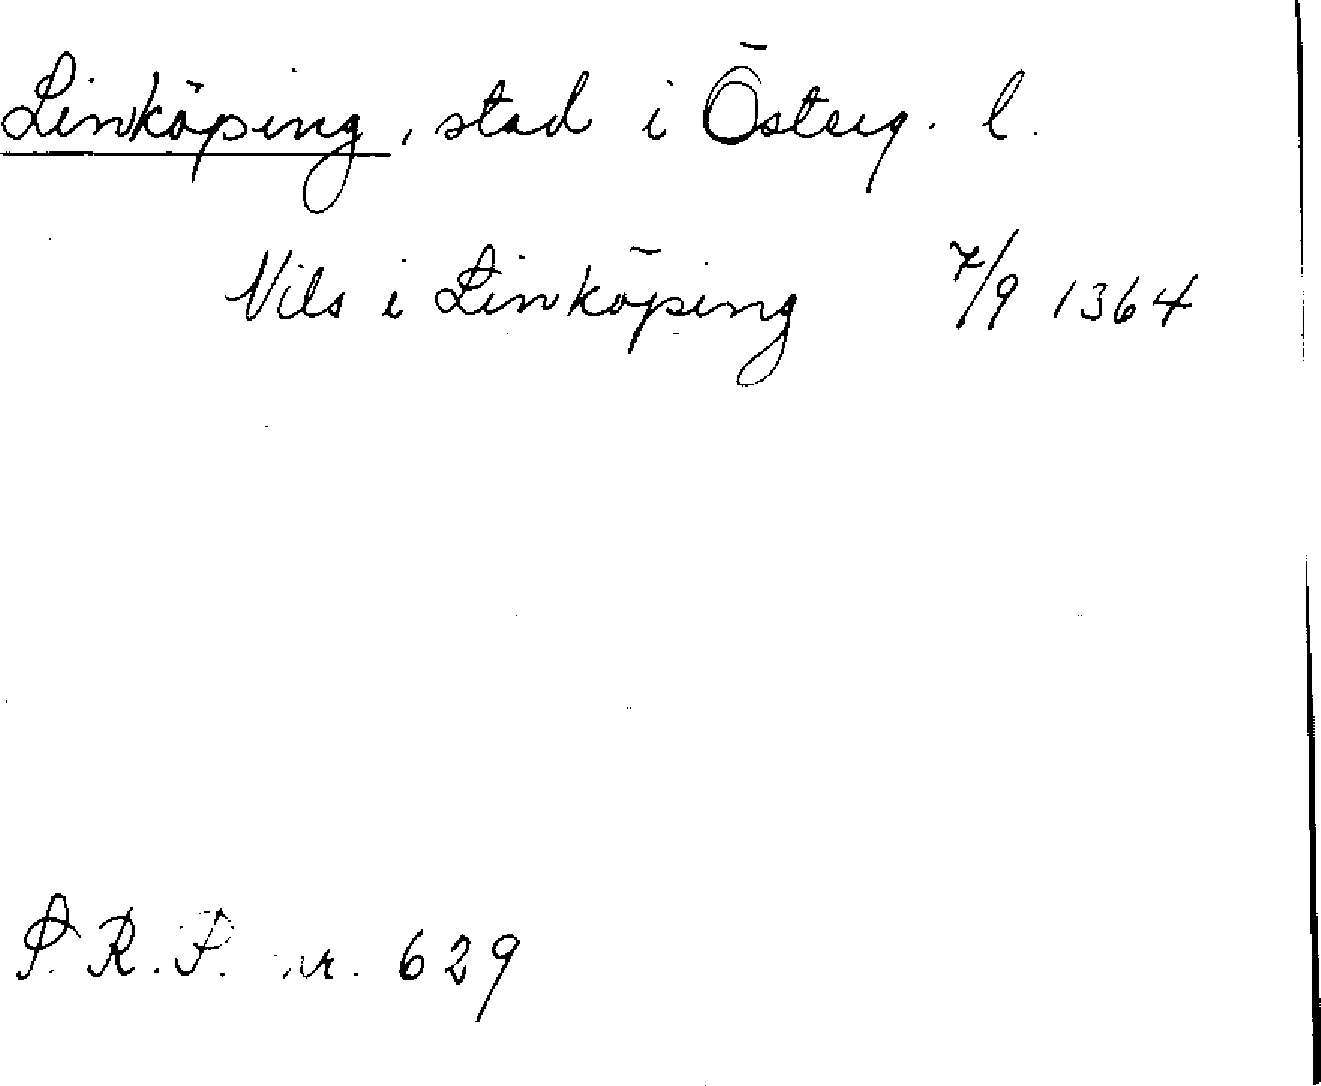 Linköping, stad i Österg. l.
Nils i Linköping 7/9 1364
S.R.P. nr. 629